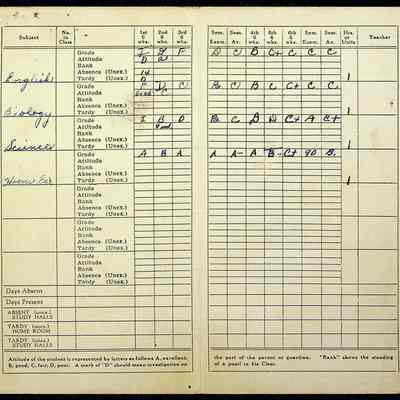 Subject No. in Class " 1st 6 wks. 2nd 6 wks. 3rd 6 wks. Sem. Exam. Sem. Av. 4th 6 wks. 5th 6 wks. 6th 6 wks. Sem. Exam. Sem. Av. Hrs. or Units Teacher
English
Grade I F D C B C+ C C C
Attitude D
Rank
Absence (Unex.)
Tardy (Unex.) 1
Biology
Grade F D C B C B C C+ C C
Attitude Good C
Rank
Absence (Unex.)
Tardy (Unex.) 1
Science
Grade I B D B C B D C+ A C+
Attitude Good
Rank
Absence (Unex.)
Tardy (Unex.) 1
Home Ec
Grade A B A A A- A B- C+ 90 B
Attitude
Rank
Absence (Unex.)
Tardy (Unex.) 1
Grade
Attitude
Rank
Absence (Unex.)
Tardy (Unex.)
Grade
Attitude
Rank
Absence (Unex.)
Tardy (Unex.)
Grade
Attitude
Rank
Absence (Unex.)
Tardy (Unex.)
Days Absent
Days Present
ABSENT (unex.)
STUDY HALLS
TARDY (unex.)
HOME ROOM
TARDY (unex.)
STUDY HALLS
Attitude of the student is represented by letters as follows A, excellent; the part of the parent or guardian. "Rank" shows the standing
B, good; C, fair; D, poor. A mark of "D" should mean investigation on of a pupil in his Class.